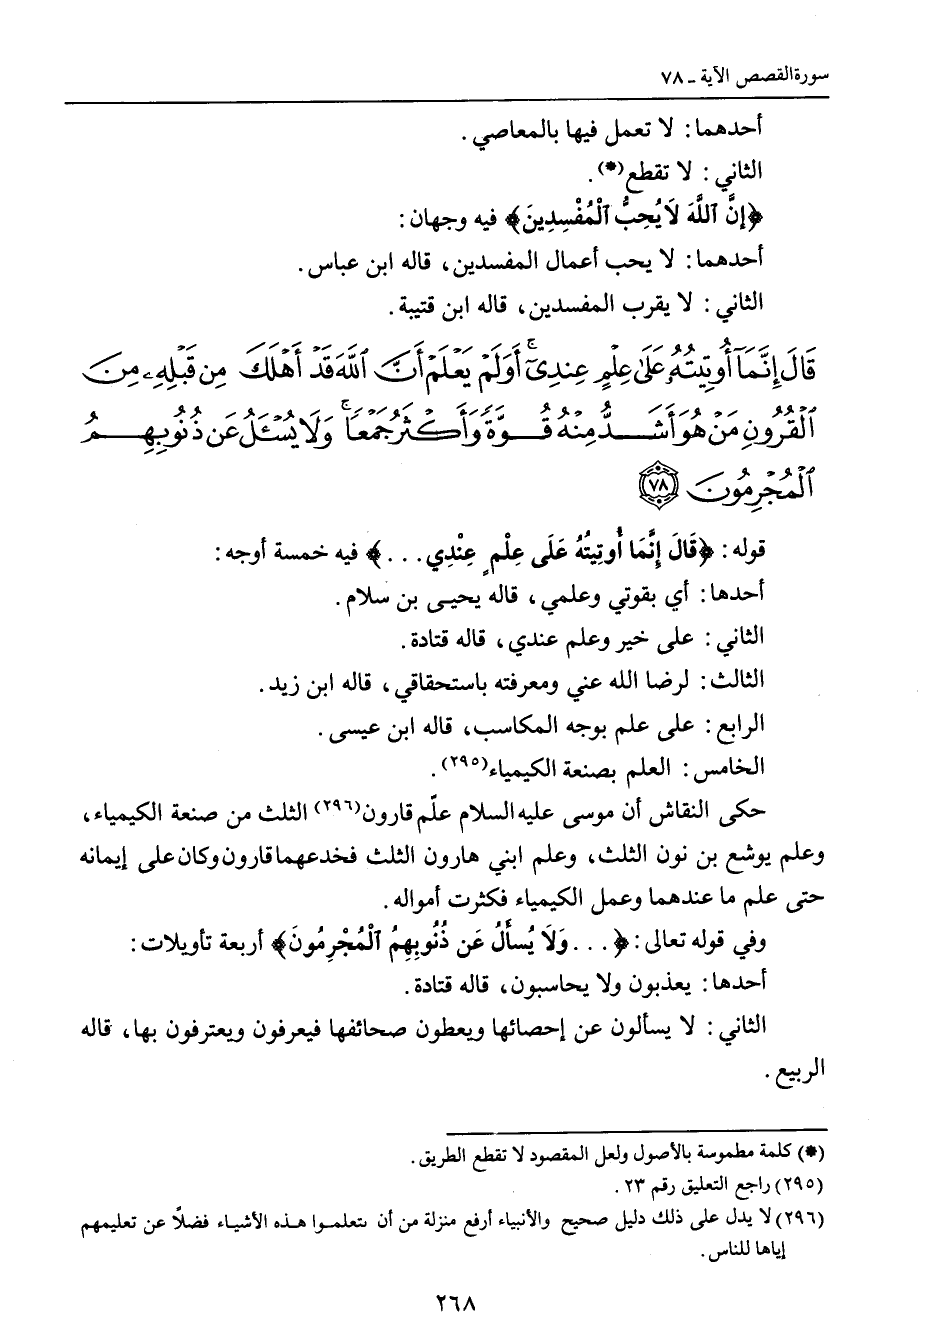 سورة القصص الآية ـ ٧٨
أحدهما: لا تعمل فيها بالمعاصي.
الثاني: لا تقطع(*).
﴿إِنَّ ٱللَّهَ لَا يُحِبُّ ٱلْمُفْسِدِينَ﴾ فيه وجهان:
أحدهما: لا يحب أعمال المفسدين، قاله ابن عباس.
الثاني: لا يقرب المفسدين، قاله ابن قتيبة.
قَالَ إِنَّمَآ أُوتِيتُهُۥ عَلَىٰ عِلْمٍ عِندِىٓ ۚ أَوَلَمْ يَعْلَمْ أَنَّ ٱللَّهَ قَدْ أَهْلَكَ مِن قَبْلِهِۦ مِنَ
ٱلْقُرُونِ مَنْ هُوَ أَشَدُّ مِنْهُ قُوَّةً وَأَكْثَرُ جَمْعًا ۚ وَلَا يُسْـَٔلُ عَن ذُنُوبِهِمُ
ٱلْمُجْرِمُونَ ٧٨
قوله: ﴿قَالَ إِنَّمَا أُوتِيتُهُ عَلَى عِلْمٍ عِنْدِي. . .﴾ فيه خمسة أوجه:
أحدها: أي بقوتي وعلمي، قاله يحيى بن سلام.
الثاني: على خير وعلم عندي، قاله قتادة.
الثالث: لرضا الله عني ومعرفته باستحقاقي، قاله ابن زيد.
الرابع: على علم بوجه المكاسب، قاله ابن عيسى.
الخامس: العلم بصنعة الكيمياء(٢٩٥).
حكى النقاش أن موسى عليه السلام علّم قارون(٢٩٦) الثلث من صنعة الكيمياء،
وعلم يوشع بن نون الثلث، وعلم ابني هارون الثلث فخدعهما قارون وكان على إيمانه
حتى علم ما عندهما وعمل الكيمياء فكثرت أمواله.
وفي قوله تعالى: ﴿. . . وَلَا يُسأَلُ عَن ذُنُوبِهِمُ ٱلْمُجْرِمُونَ﴾ أربعة تأويلات:
أحدها: يعذبون ولا يحاسبون، قاله قتادة.
الثاني: لا يسألون عن إحصائها ويعطون صحائفها فيعرفون ويعترفون بها، قاله
الربيع.
(*) كلمة مطموسة بالأصول ولعل المقصود لا تقطع الطريق.
(٢٩٥) راجع التعليق رقم ٢٣.
(٢٩٦) لا يدل على ذلك دليل صحيح والأنبياء أرفع منزلة من أن يتعلموا هذه الأشياء فضلاً عن تعليمهم
إياها للناس.
٢٦٨